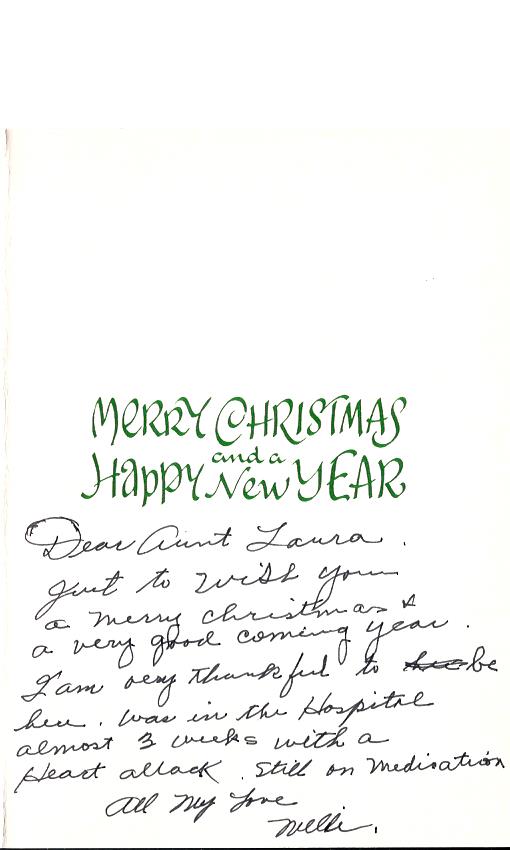 MERRY CHRISTMAS
and a
Happy New YEAR
Dear Aunt Laura.
Just to wish you
a merry christmas &
a very good coming year.
I am very thankful to be
here. Was in the Hospital
almost 3 weeks with a
Heart attack. Still on Medisation
All My Love